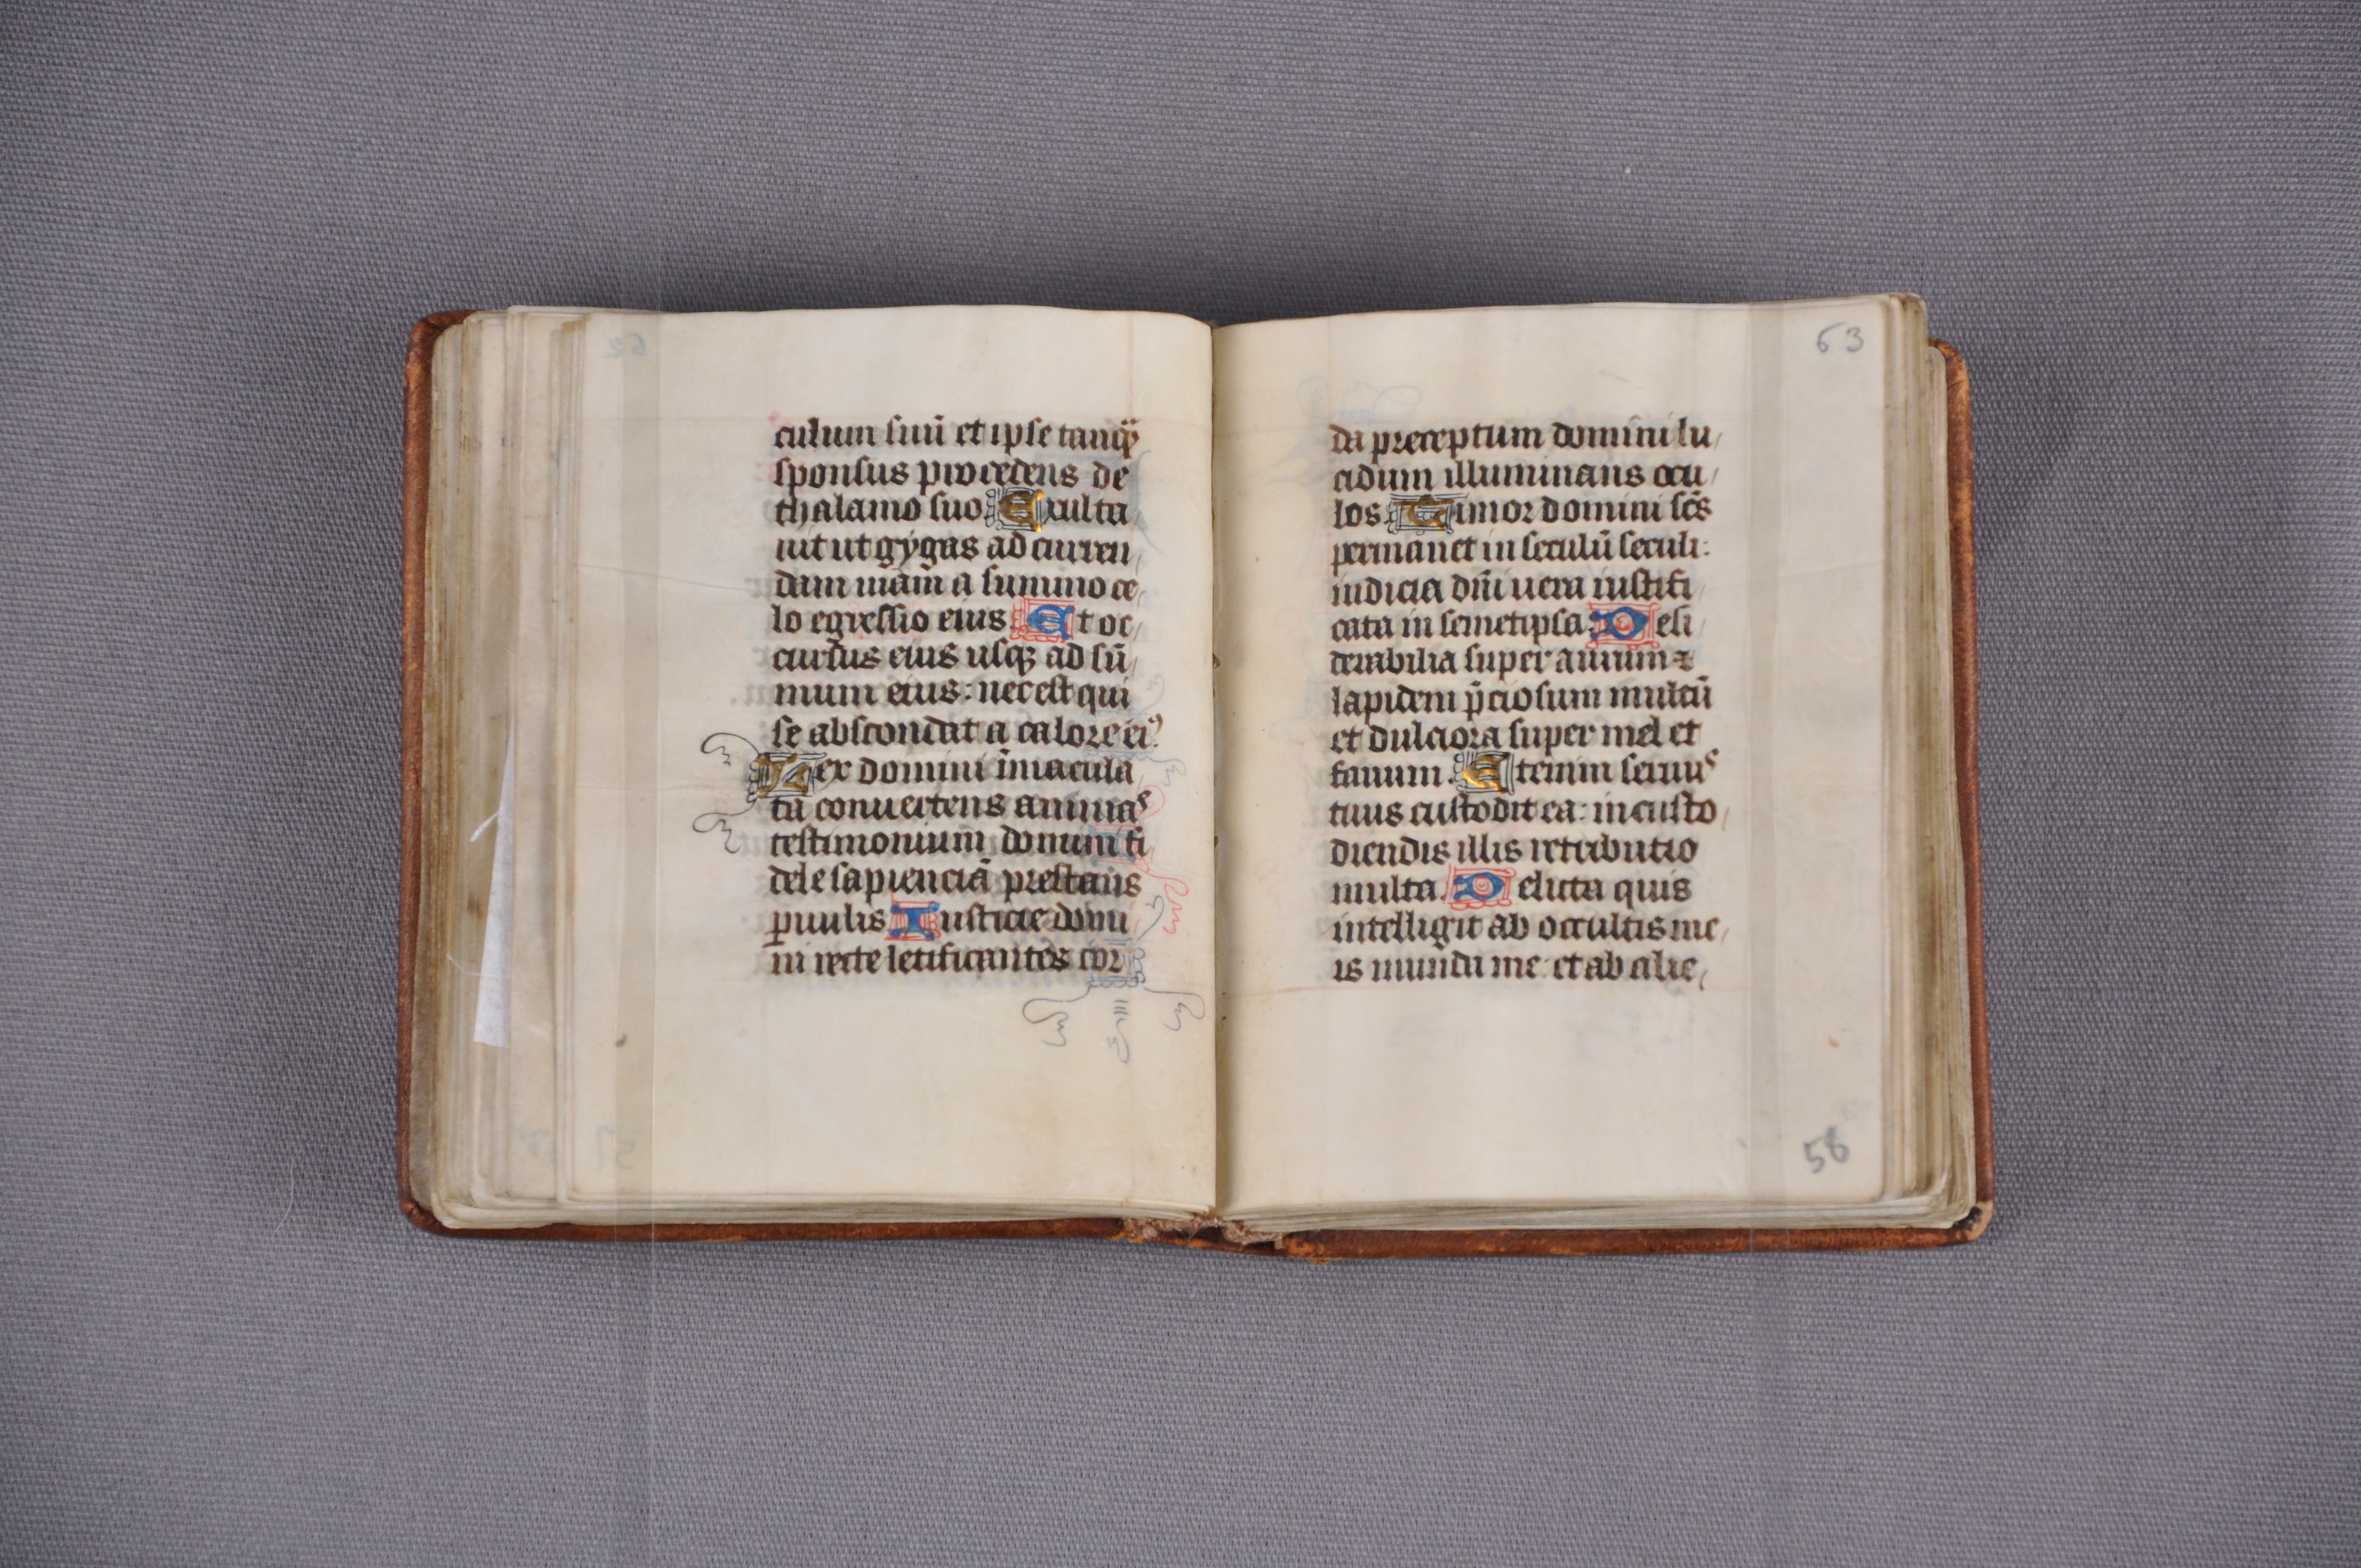 culum suū et ipse tanqȝ
sponsus procedens de
thalamo suo. Exulta
uit ut gygas ad curren
dam uiam̄ a summo ce
lo egressio eius. Et oc
cursus eius usqȝ ad sū
mum eius: nec est qui
se abscondat a calore eiꝰ.
Lex domini īmacula
ta conuertens animas
testimonium domini fi
dele sapienciā prestans
ꝑuulis. Iusticie domi
ni recte letificantes cor
62
63
da preceptum domini lu
cidum illuminans ocu
los. Timor domini scs̄
permanet in seculū seculi:
iudicia dn̄i uera iustifi
cata in semetipsa. Desi
derabilia super aurum ⁊
lapidem p̄ciosum multū
et dulciora super mel et
fauum. Etenim seruus
tuus custodit ea: in custo
diendis illis retributio
multa. Delicta quis
intelligit ab occultis me
is munda me: et ab alie
57
58